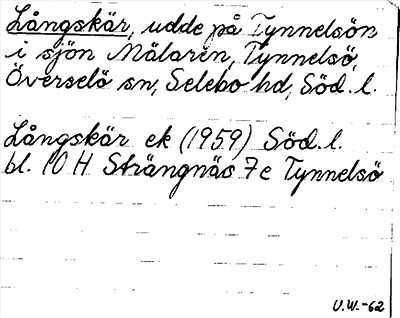 Långskär, udde på Tynnelsön
i sjön Mälaren, Tynnelsö,
Överselö sn, Selebo hd, Söd. l.
Långskär ek (1959) Söd. l.
bl. 10 H Strängnäs 7c Tynnelsö
U.W.-62